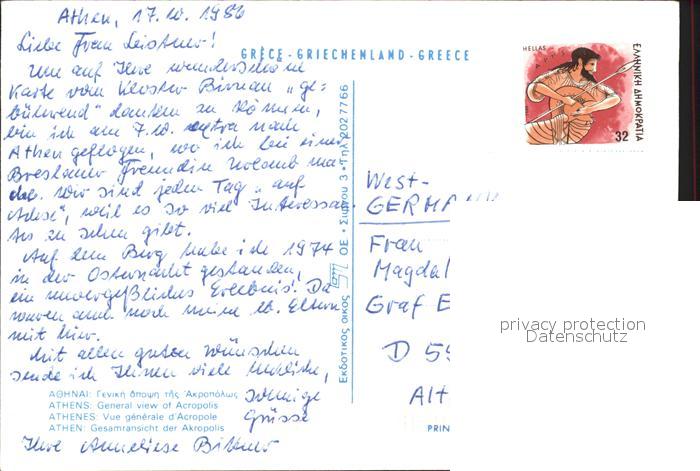 Athen, 17.10. 1986
Liebe Frau Leistner!
GRÈCE - GRIECHENLAND - GREECE
Um auf Ihre wunderschöne
Karte vom Kloster Birnau „ge-
bührend" danken zu können,
bin ich am 7.10. extra nach
Athen geflogen, wo ich bei einer
Breslauer Freundin Urlaub ma-
che. Wir sind jeden Tag „auf
Achse", weil es so viel Interessan-
tes zu sehen gibt.
Auf dem Berg habe ich 1974
in der Osternacht gestanden,
ein unvergeßliches Erlebnis! Da
waren auch noch meine lb. Eltern
mit hier.
Mit allen guten Wünschen
sende ich Ihnen viele herzliche,
sonnige
Grüsse
Ihre Anneliese Bittner
ΑΘΗΝΑΙ: Γενική ἄποψη τῆς Ἀκροπόλως
ATHENS: General view of Acropolis
ATHENES: Vue générale d'Acropole
ATHEN: Gesamtansicht der Akropolis
Εκδοτικος οικος ΟΕ • Σίφνου 3 • Τηλ. 2027766
HELLAS
ΕΛΛΗΝΙΚΗ ΔΗΜΟΚΡΑΤΙΑ
32
West-
GERMA
Frau
Magdal
Graf
D 5
Alt
PRIN
privacy protection
Datenschutz